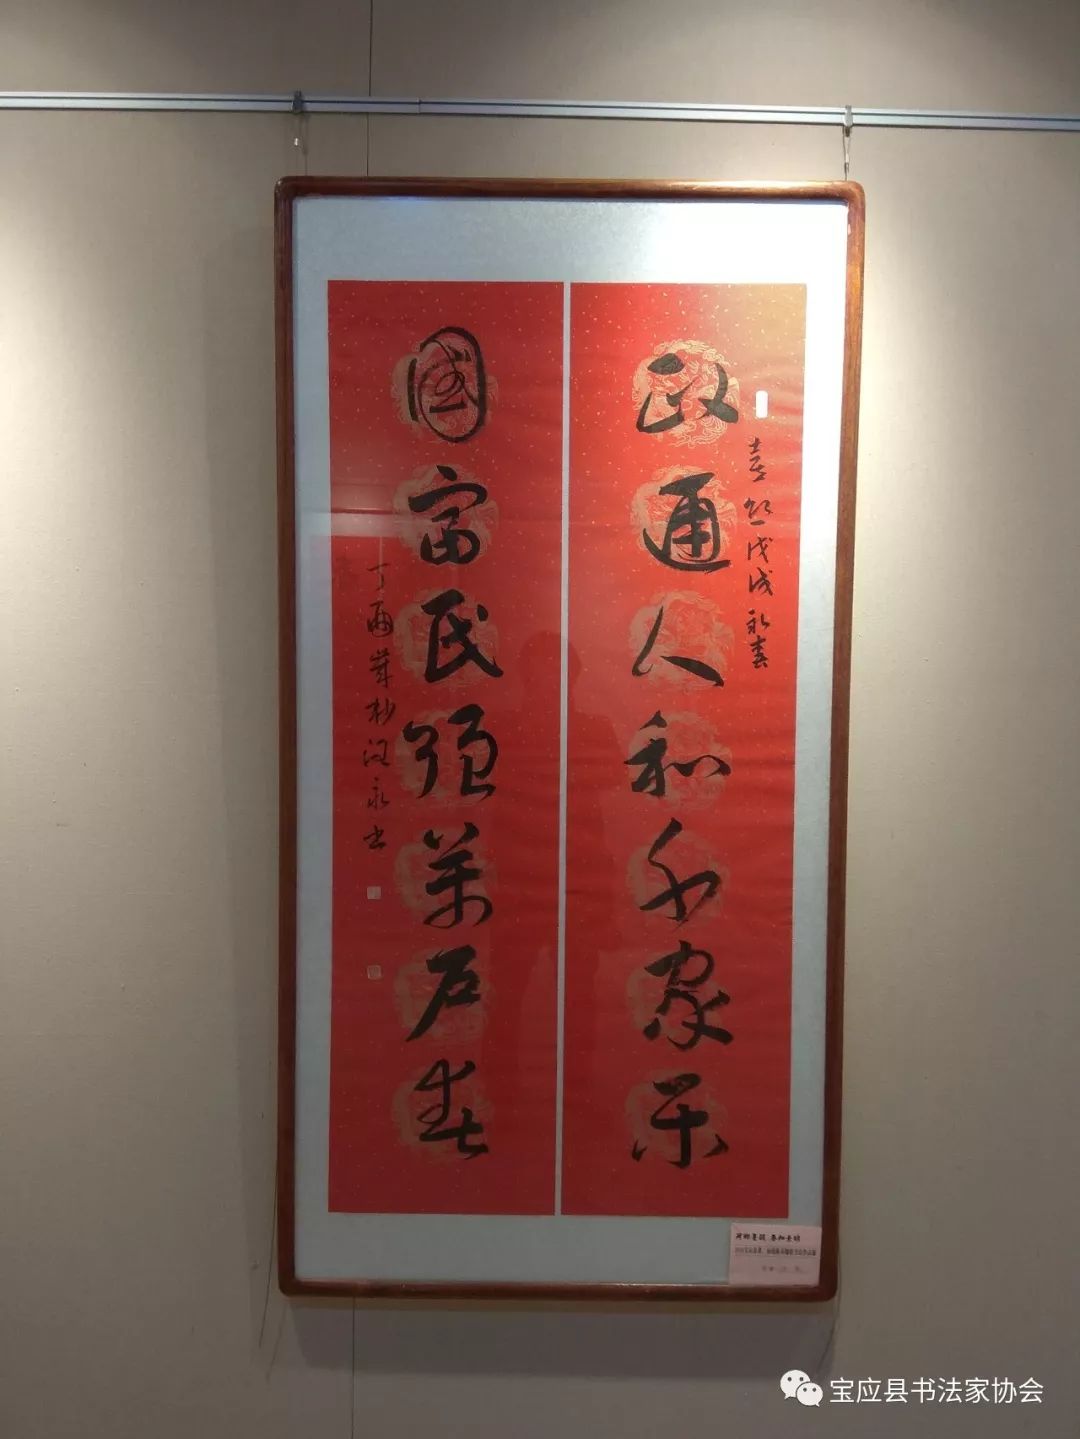 政通人和千家乐
喜贺戊戌新春
國富民强萬戶春
丁酉岁杪汉永书
宝应县书法家协会